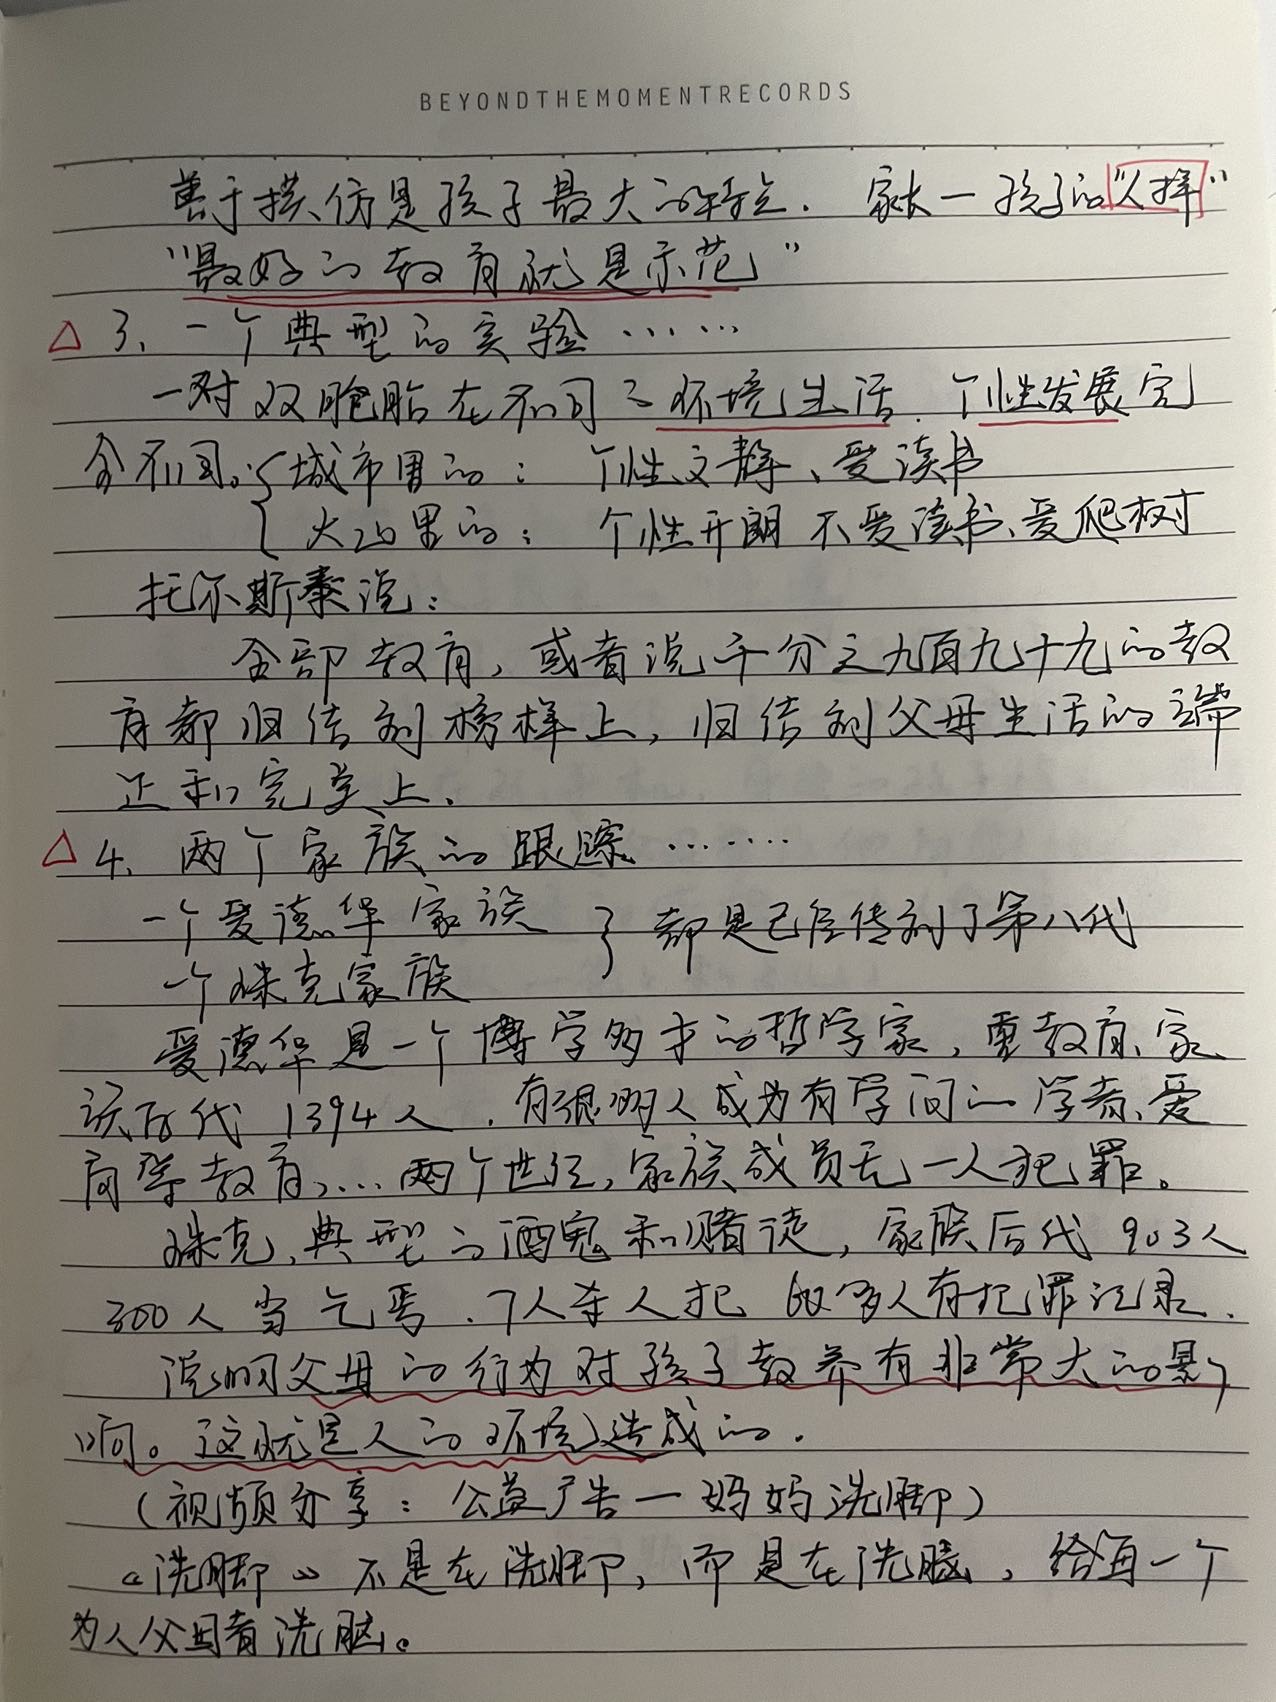 BEYONDTHEMOMENTRECORDS
善于模仿是孩子最大的特点. 家长一孩子的“人样”
“最好的教育就是示范”
△ 3、一个典型的实验……
一对双胞胎在不同的环境生活. 个性发展完
全不同。{城市里的: 个性文静、爱读书
{大山里的: 个性开朗 不爱读书、爱爬树
托尔斯泰说:
全部教育, 或者说千分之九百九十九的教
育都归结到榜样上, 归结到父母生活的端
正和完美上.
△ 4、两个家族的跟踪.……
一个爱德华家族
一个珠克家族 } 都是已经传到了第八代
爱德华是一个博学多才的哲学家, 重教育、家
族后代 1394人. 有很多人成为有学问的学者、受
高等教育,... 两个世纪, 家族成员无一人犯罪。
珠克, 典型的酒鬼和赌徒, 家族后代 903人
300人当乞丐. 7人杀人犯 60多人有犯罪记录.
说明父母的行为对孩子教养有非常大的影
响。这就是人的环境造成的.
(视频分享: 公益广告一妈妈洗脚)
《洗脚》不是在洗脚, 而是在洗脑, 给每一个
为人父母者洗脑。